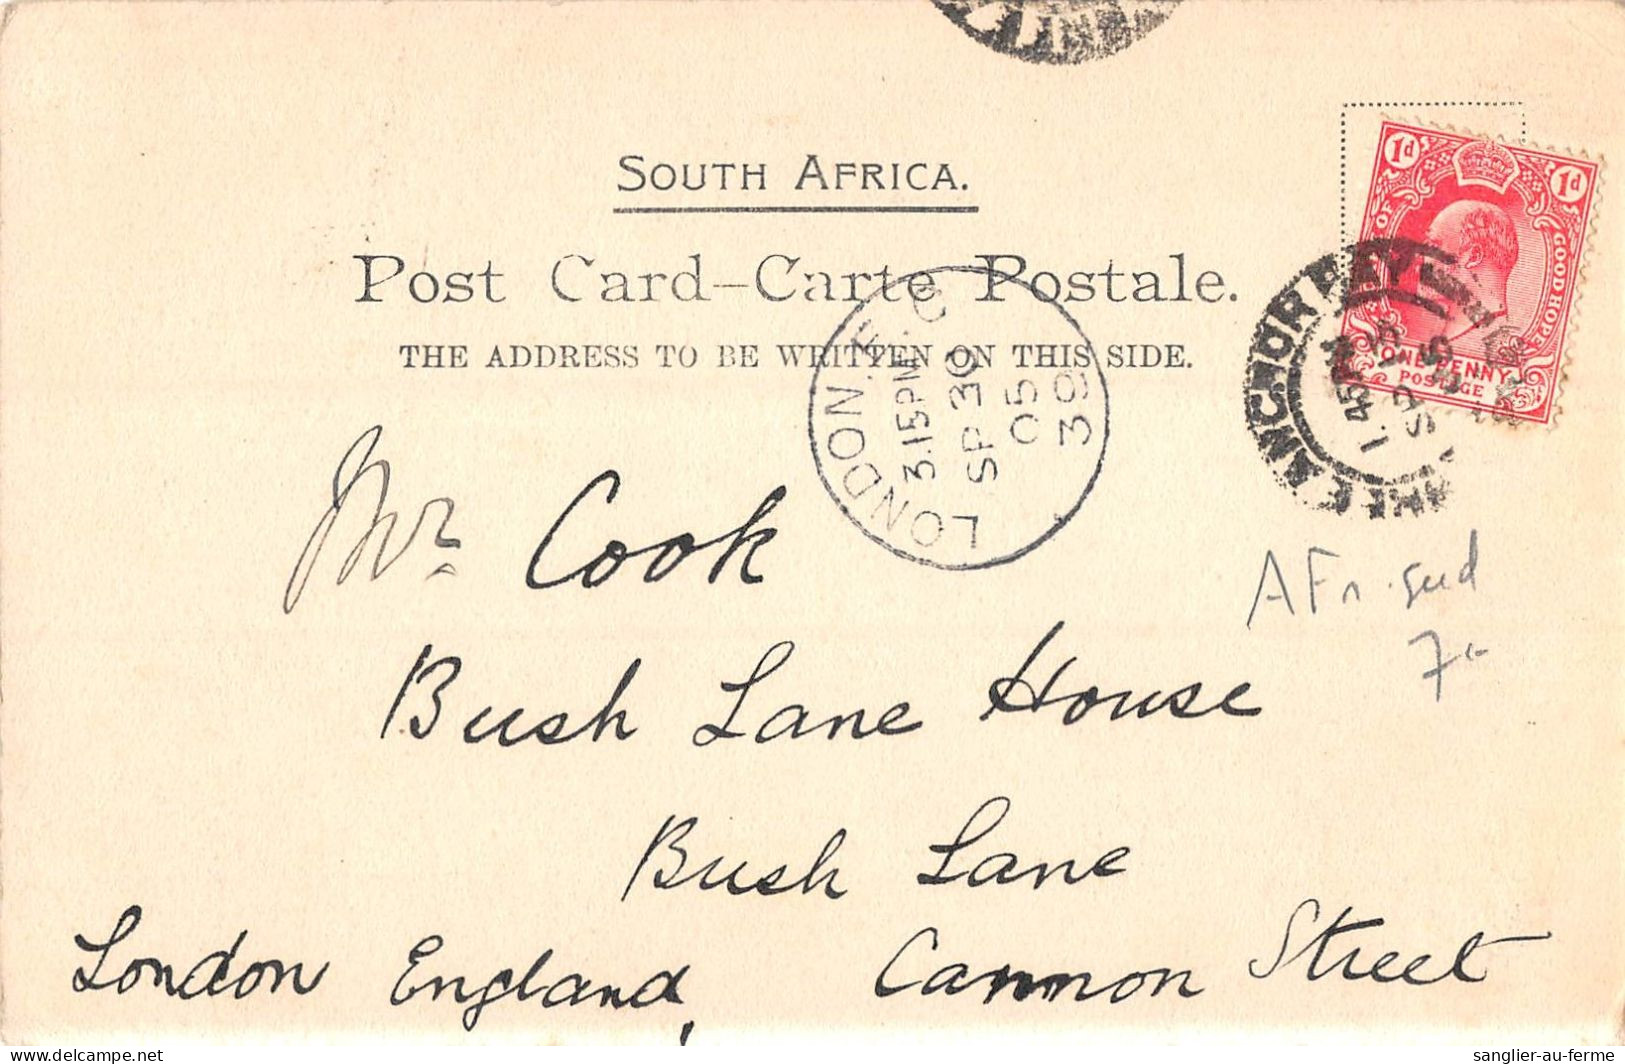 SOUTH AFRICA.
Post Card–Carte Postale.
THE ADDRESS TO BE WRITTEN ON THIS SIDE.
1d 1d
OF GOOD HOPE
ONE PENNY
POSTAGE
LONDON. E.C
3.15PM
SP 30
05
39
ANCHOR BAY
1.45PM
SP
Mr. Cook
Bush Lane House
Bush Lane
Cannon Street
London England,
AFr. sud
7
delcampe.net
sanglier-au-ferme